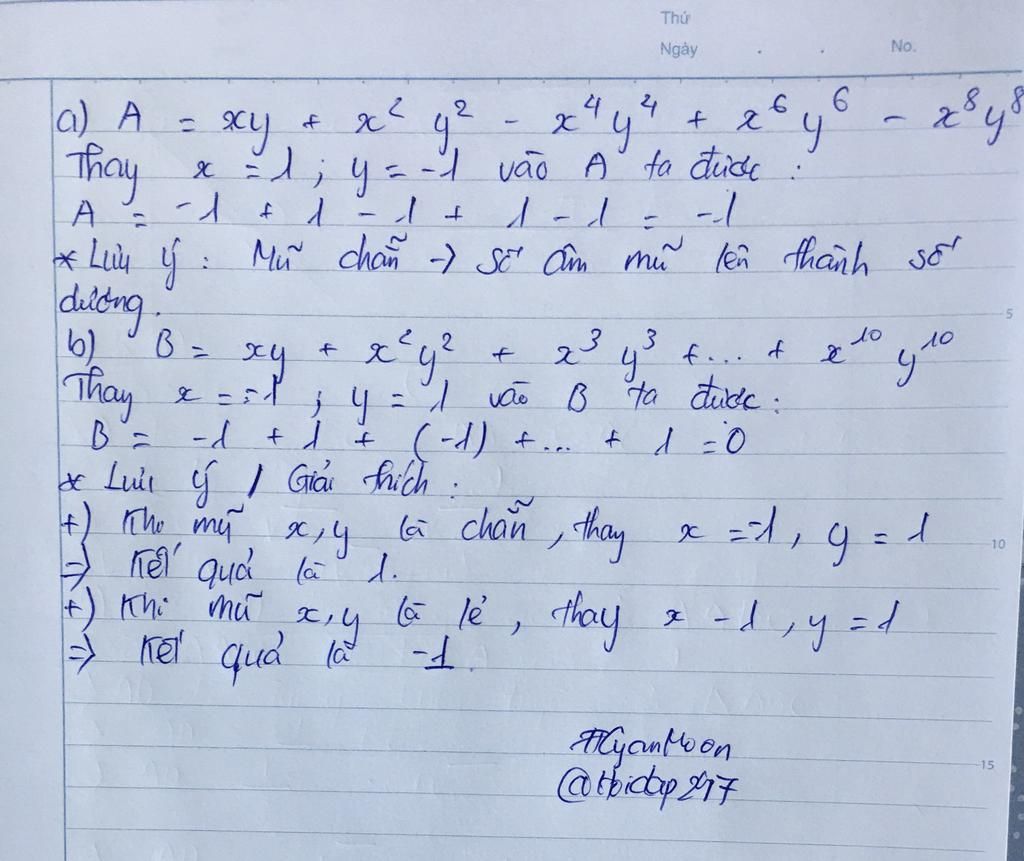 Thứ
Ngày . . No.
a) A = xy + x² y² - x⁴y⁴ + x⁶y⁶ - x⁸y⁸
Thay x = 1 ; y = -1 vào A ta được :
A = -1 + 1 - 1 + 1 - 1 = -1
* Lưu ý : Mũ chẵn → số âm mũ lên thành số
dương.
5
b) B = xy + x²y² + x³y³ +... + x¹⁰y¹⁰
Thay x = -1 ; y = 1 vào B ta được :
B = -1 + 1 + (-1) +... + 1 = 0
* Lưu ý / Giải thích :
+) Khi mũ x,y là chẵn , thay x = -1 , y = 1
10
=> Kết quả là 1.
+) Khi mũ x,y là lẻ , thay x - 1 , y = 1
=> Kết quả là -1.
#CyanMoon
15
@Hoidap247